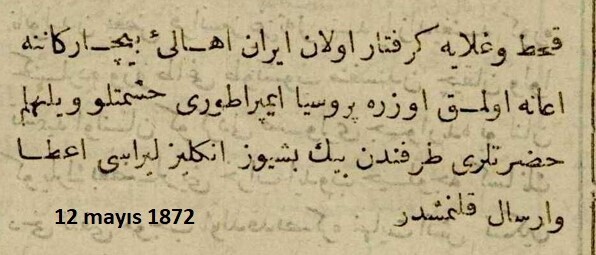 قحط وغلايه كرفتار اولان ايران اهالئ بيچاركاننه
اعانه اولمق اوزره پروسيا ايمپراطورى حشمتلو ويلهلم
حضرتلرى طرفندن بيك بشيوز انكليز ليراسى اعطا
وارسال قلنمشدر
12 mayıs 1872